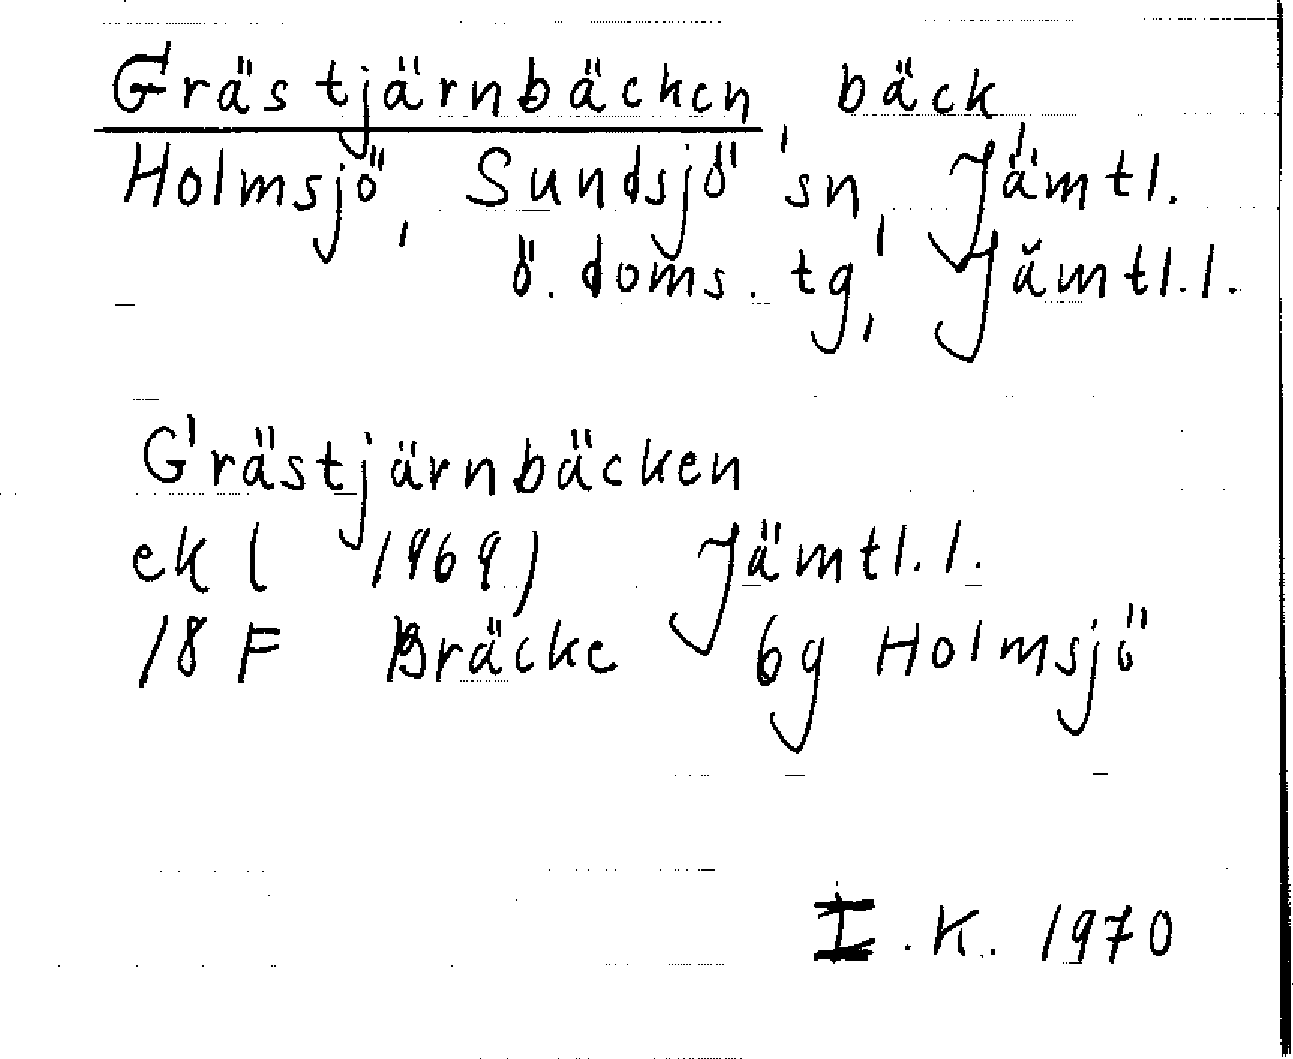 Grästjärnbäcken, bäck,
Holmsjö, Sundsjö sn, Jämtl.
ö. doms. tg, Jämtl.l.
Grästjärnbäcken
ek (1969) Jämtl.l.
18 F Bräcke 6g Holmsjö
I.K. 1970